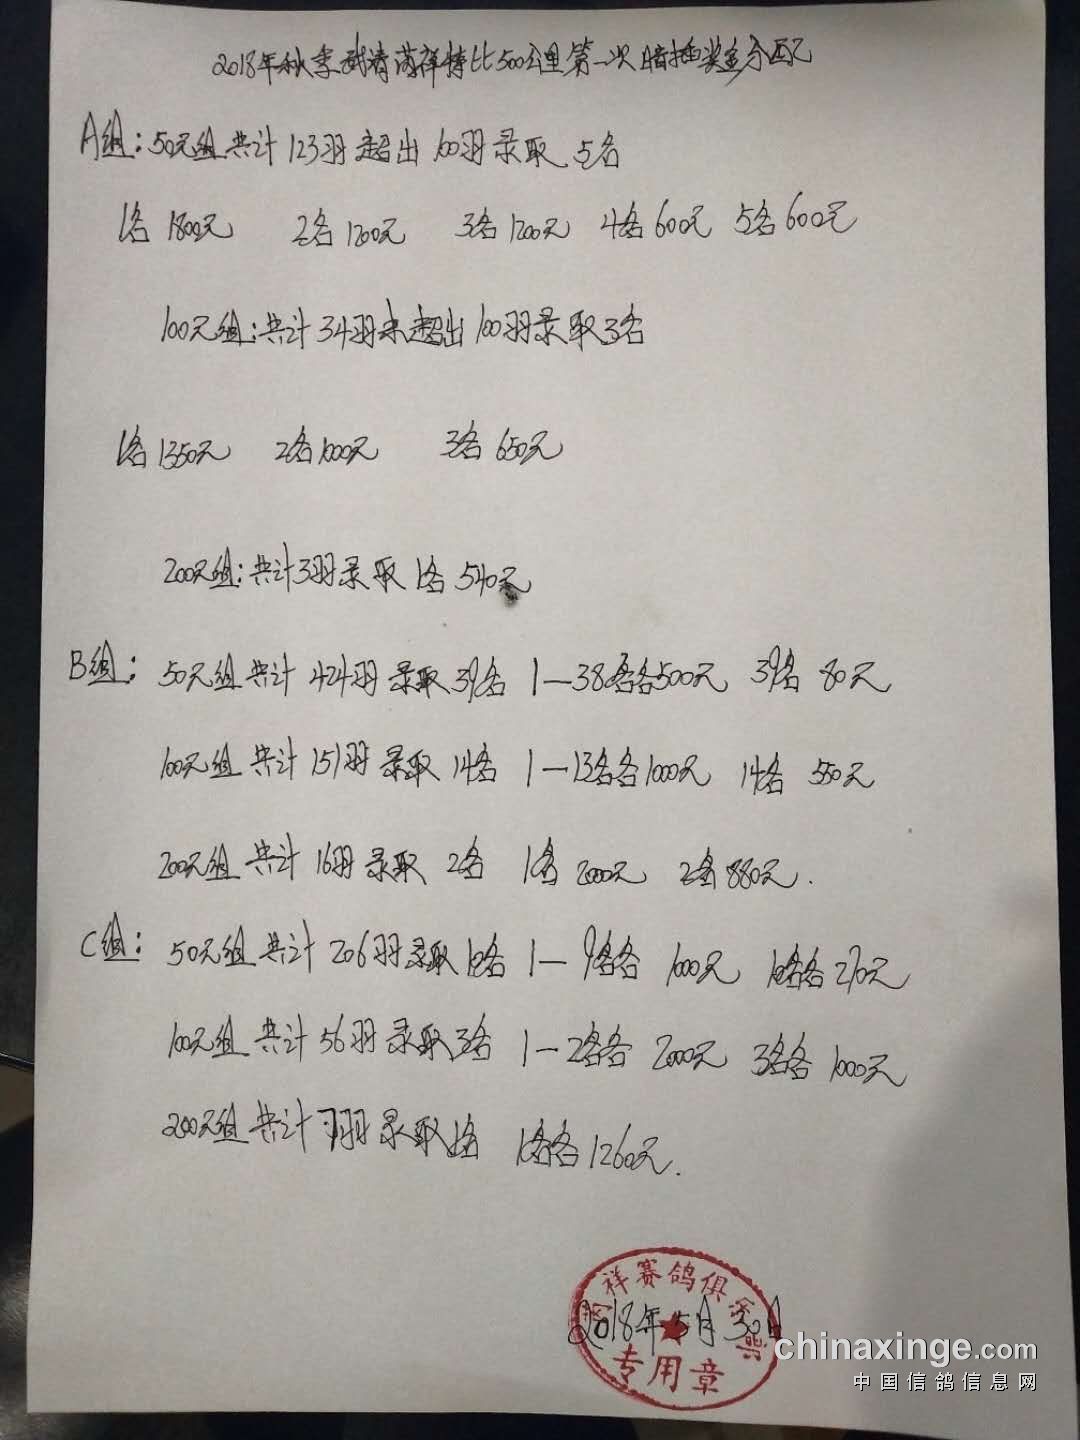 2018年秋季武清满祥特比500公里第一次暗插奖金分配
A组:50元组共计123羽超出100羽录取5名
1名1800元 2名1200元 3名1200元 4名600元 5名600元
100元组:共计34羽未超出100羽录取3名
1名1350元 2名1000元 3名650元
200元组:共计3羽录取1名540元
B组:50元组共计424羽录取39名 1—38名各500元 39名80元
100元组共计151羽录取14名 1—13名各1000元 14名550元
200元组共计16羽录取2名 1名2000元 2名880元.
C组:50元组共计206羽录取10名 1—9名各1000元 10名各270元
100元组共计56羽录取3名 1—2名各2000元 3名各1000元
200元组共计7羽录取1名 1名各1260元.
祥赛鸽俱乐部
2018年5月30日
专用章
chinaxinge.com
中国信鸽信息网